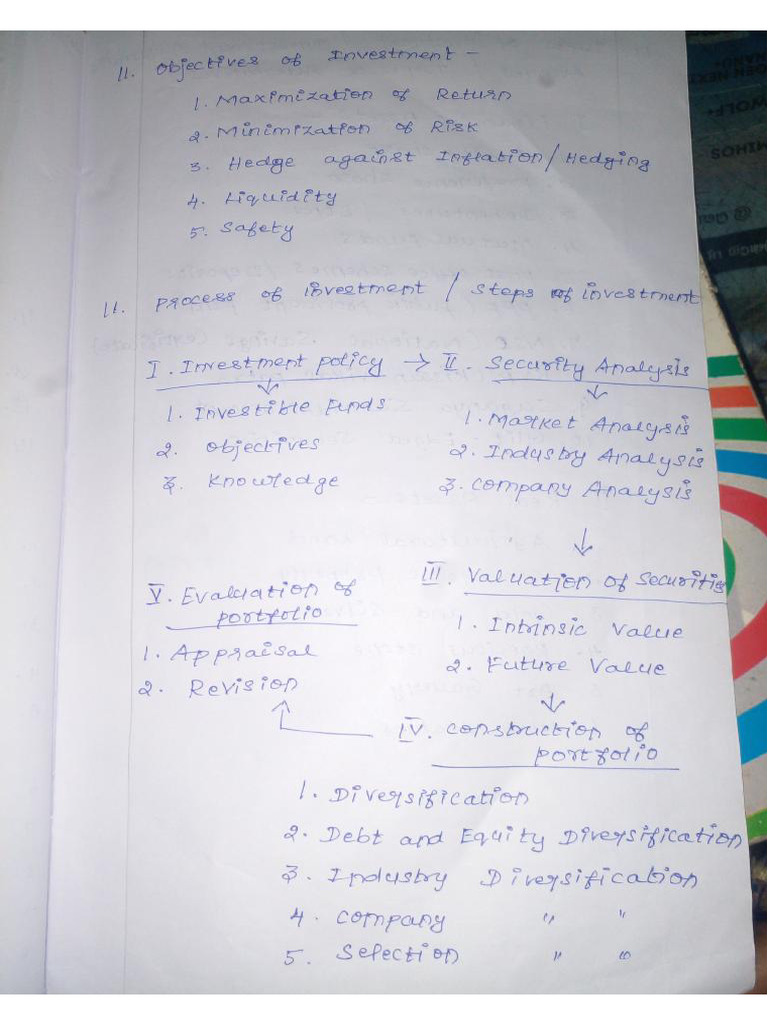 11. Objectives of Investment -
1. Maximization of Return
2. Minimization of Risk
3. Hedge against Inflation/Hedging
4. Liquidity
5. Safety
11. Process of investment / steps of investment
I. Investment policy → II. Security Analysis
↓ ↓
1. Investible Funds
2. objectives
3. Knowledge
1. Market Analysis
2. Industry Analysis
3. Company Analysis
↓
III. Valuation of Securities
1. Intrinsic Value
2. Future Value
↓
IV. Construction of
portfolio
1. Diversification
2. Debt and Equity Diversification
3. Industry Diversification
4. Company " "
5. Selection " "
V. Evaluation of
portfolio
1. Appraisal
2. Revision